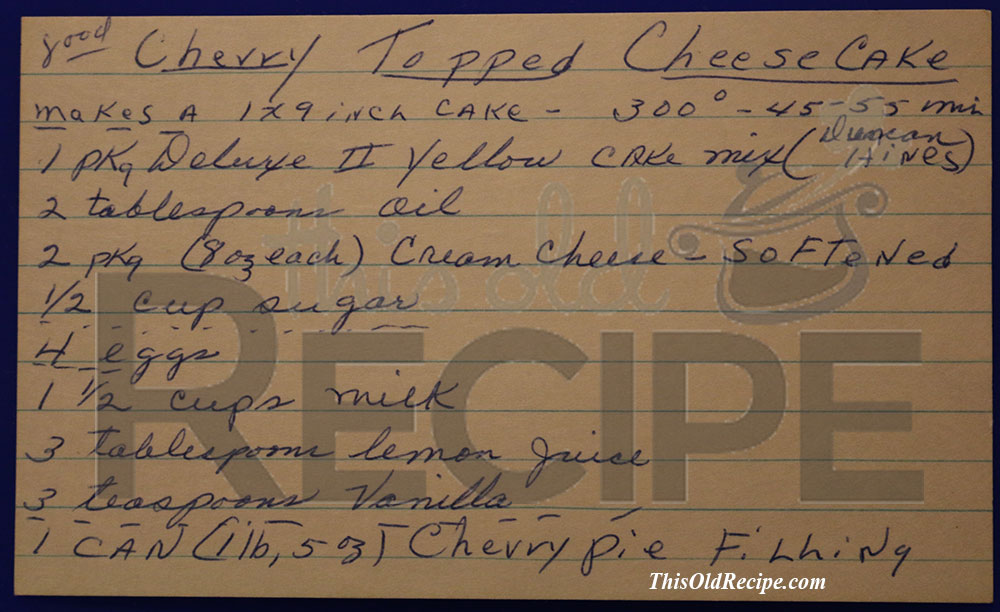 good Cherry Topped Cheese Cake
makes A 1x9 inch CAKE - 300° - 45-55 min
1 pkg Deluxe II Yellow CAKE mix (Duncan Hines)
2 tablespoons oil
2 pkg (8 oz each) Cream Cheese - SOFTENed
1/2 cup sugar
4 eggs
1 1/2 cups milk
3 tablespoons lemon juice
3 teaspoons Vanilla
1 CAN (1 lb, 5 oz) Cherry pie Filling
this old
RECIPE
ThisOldRecipe.com